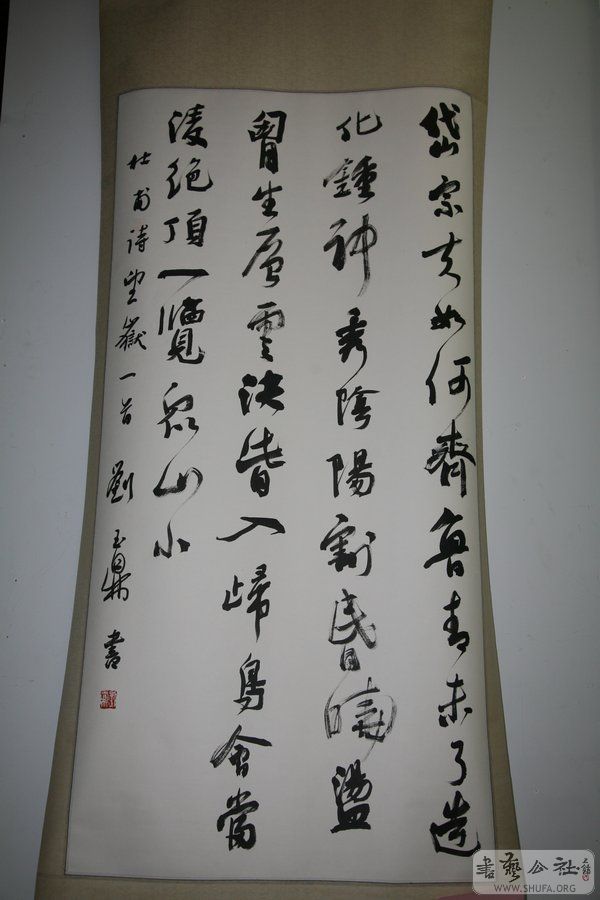 岱宗夫如何齊魯青未了造
化鍾神秀陰陽割昬曉盪
胷生層雲決眥入歸鳥會當
淩絕頂一覽眾山小
杜甫詩望嶽一首 劉玉鼎書
書藝公社
WWW.SHUFA.ORG